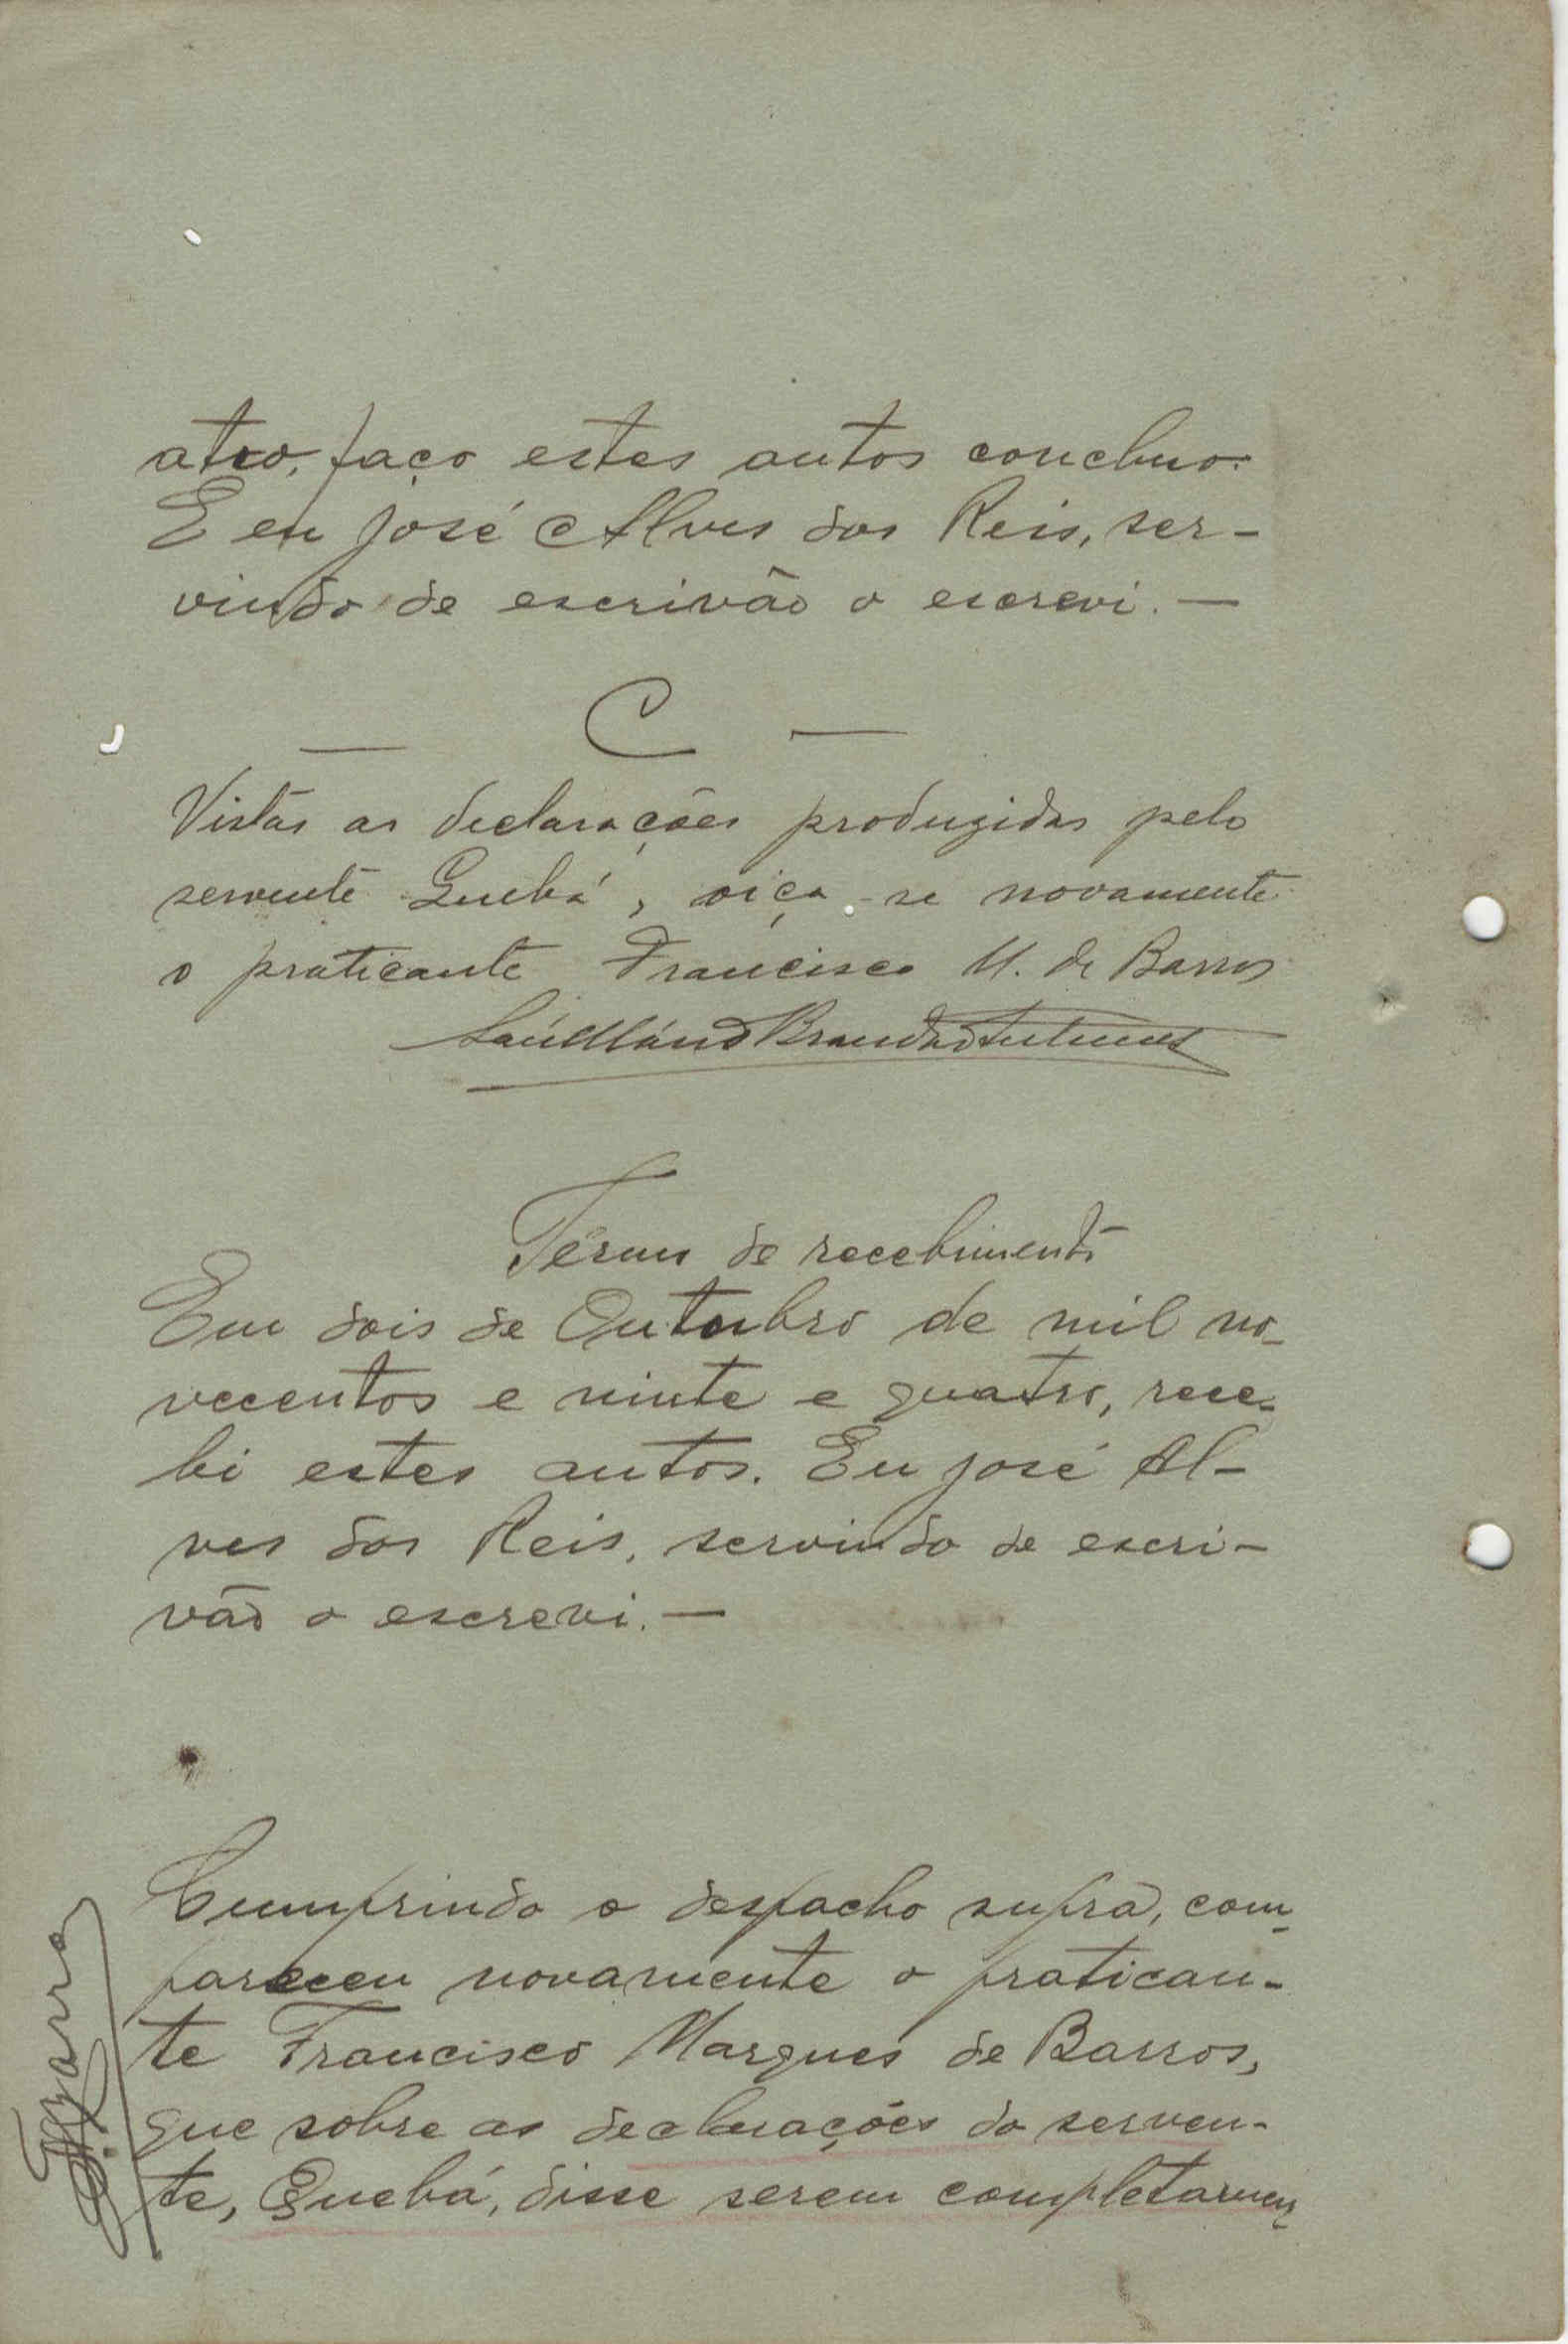 atro, faço estes autos concluso.
E eu José Alves dos Reis, ser-
vindo de escrivão o escrevi. —
— C —
Vistas as declarações produzidas pelo
servente Quebá, oiça-se novamente
o praticante Francisco M. de Barros
Brandão Antunes
Têrmo de recebimento
Em dois de Outubro de mil no-
vecentos e vinte e quatro, rece-
bi estes autos. Eu José Al-
ves dos Reis, servindo de escri-
vão o escrevi. —
Cumprindo o despacho supra, com-
pareceu novamente o pratican-
te Francisco Marques de Barros,
que sobre as declarações do serven-
te, Quebá, disse serem completamen-
Barros